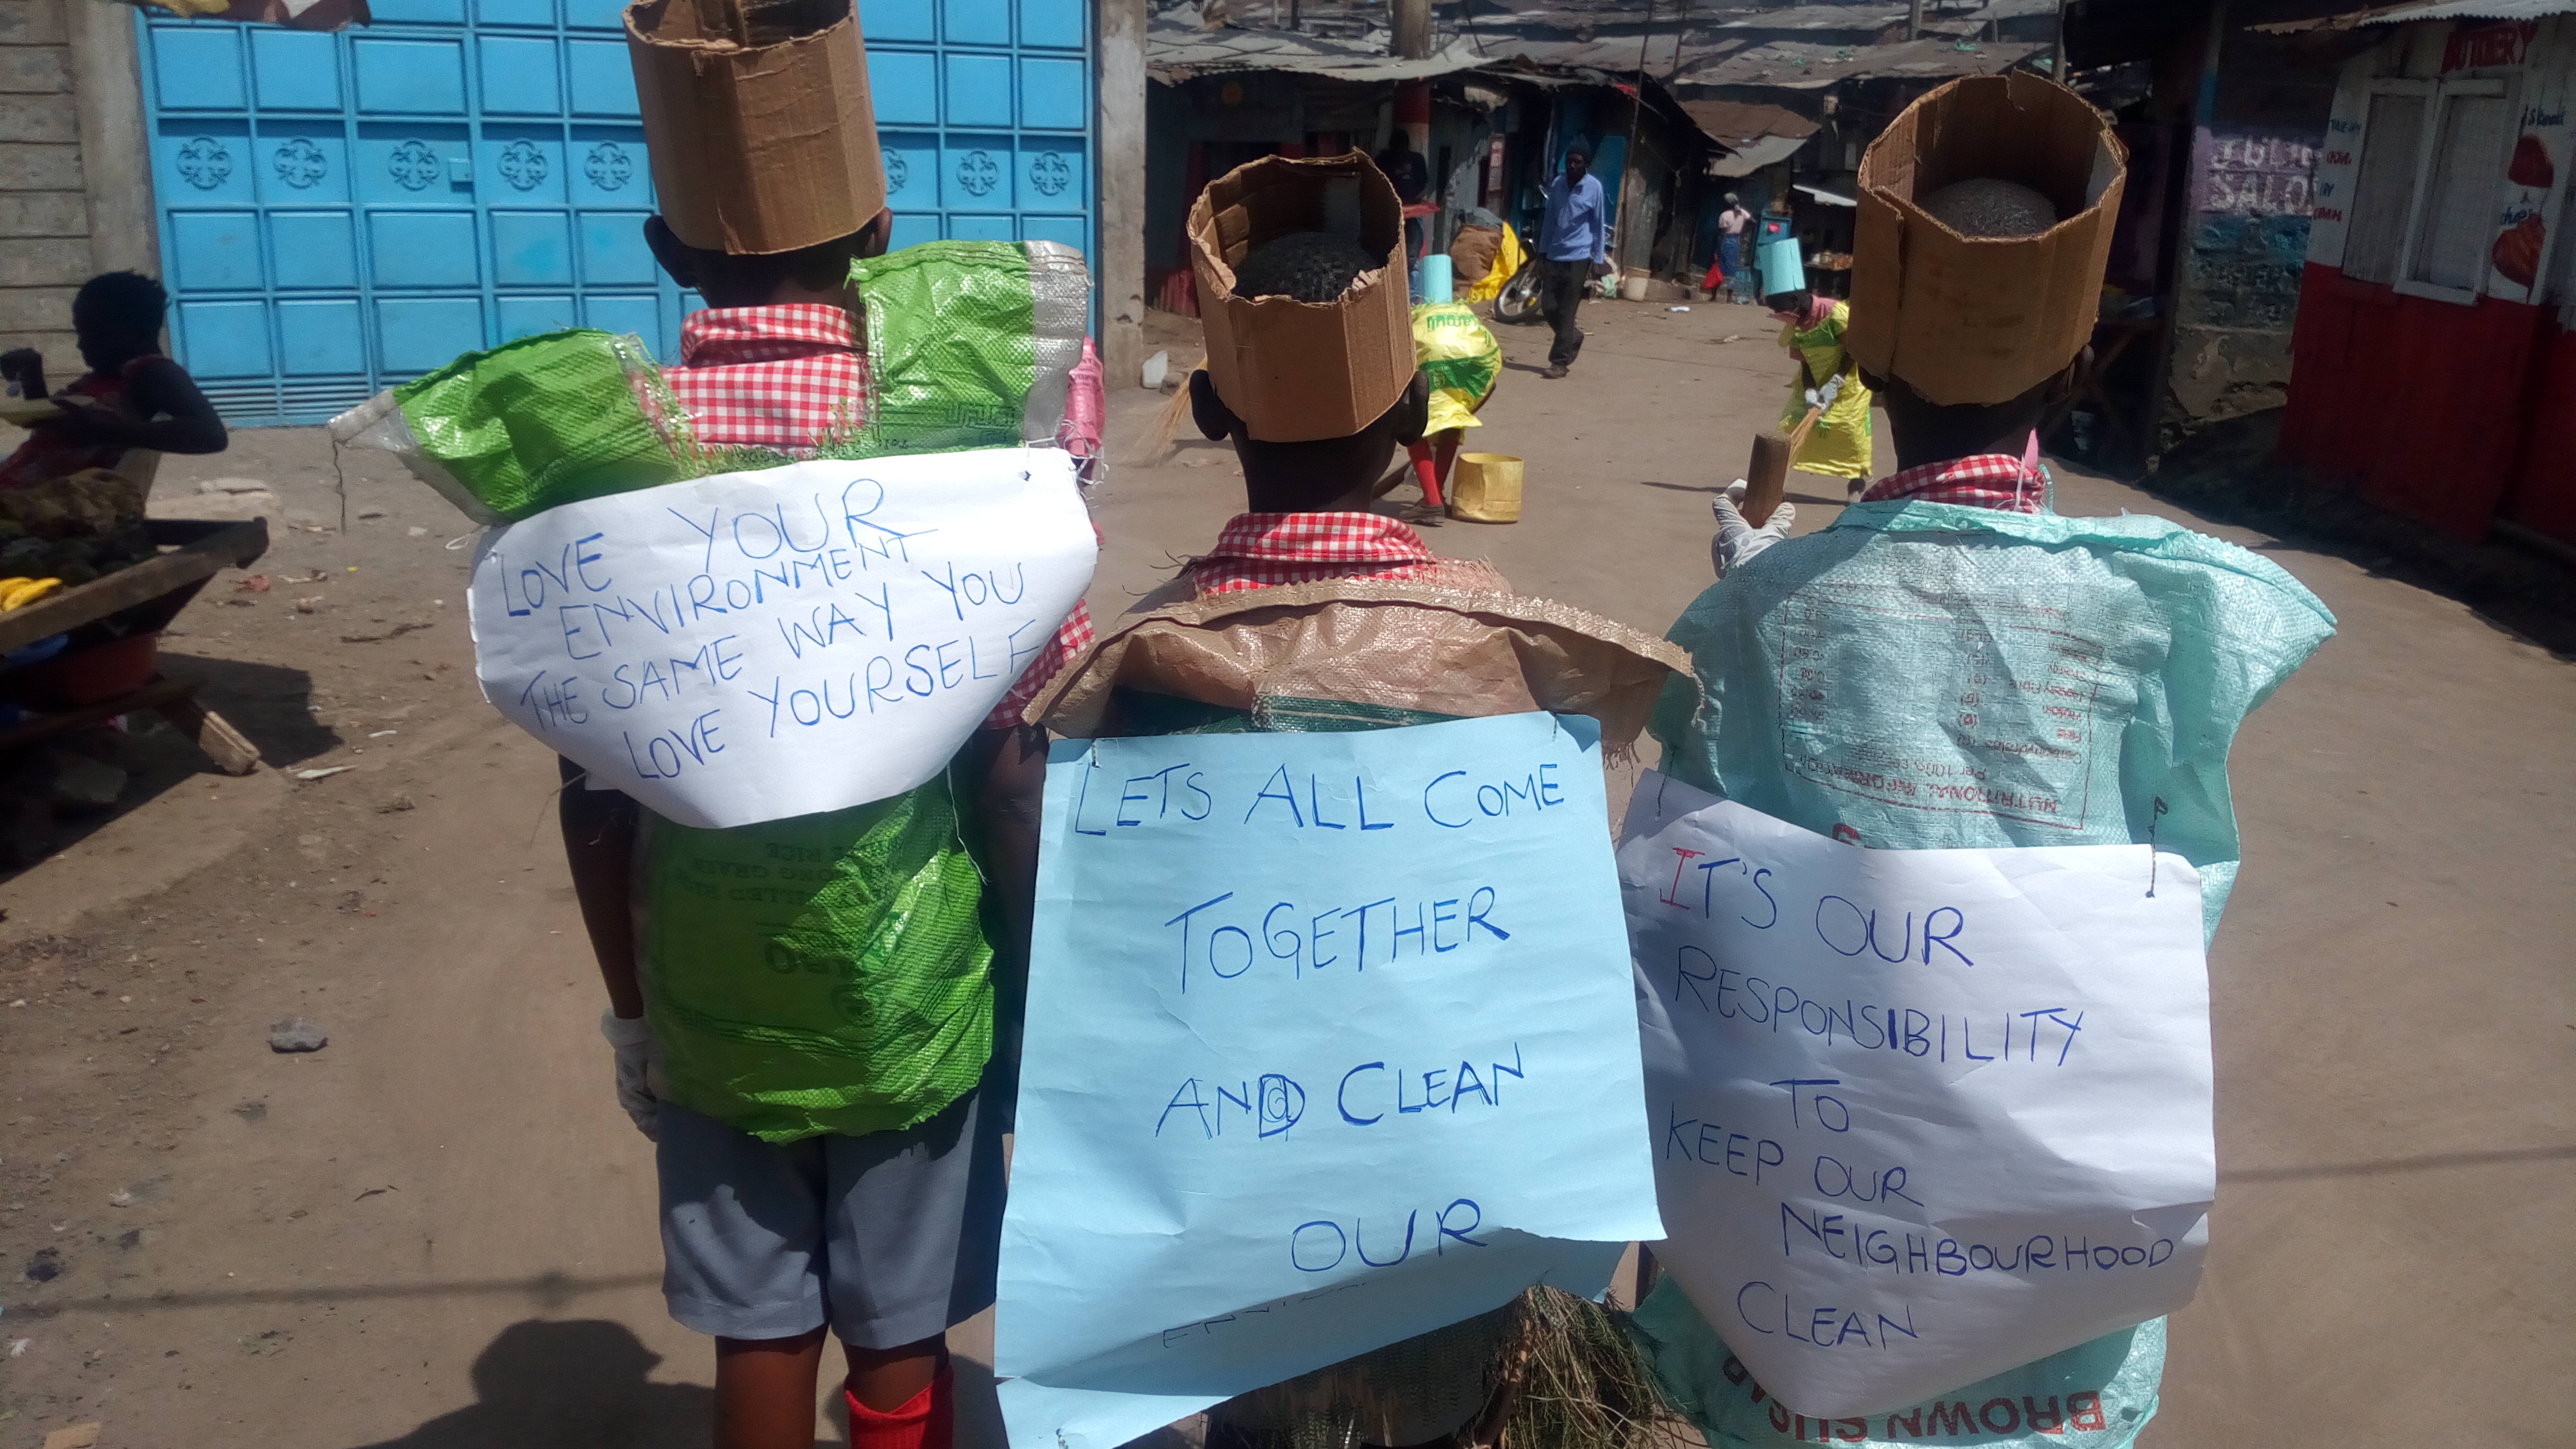 LOVE YOUR
ENVIRONMENT
THE SAME WAY YOU
LOVE YOURSELF
LETS ALL COME
TOGETHER
AND CLEAN
OUR
IT'S OUR
RESPONSIBILITY
TO
KEEP OUR
NEIGHBOURHOOD
CLEAN
NUTRITIONAL INFORMATION
BROWN
SALON